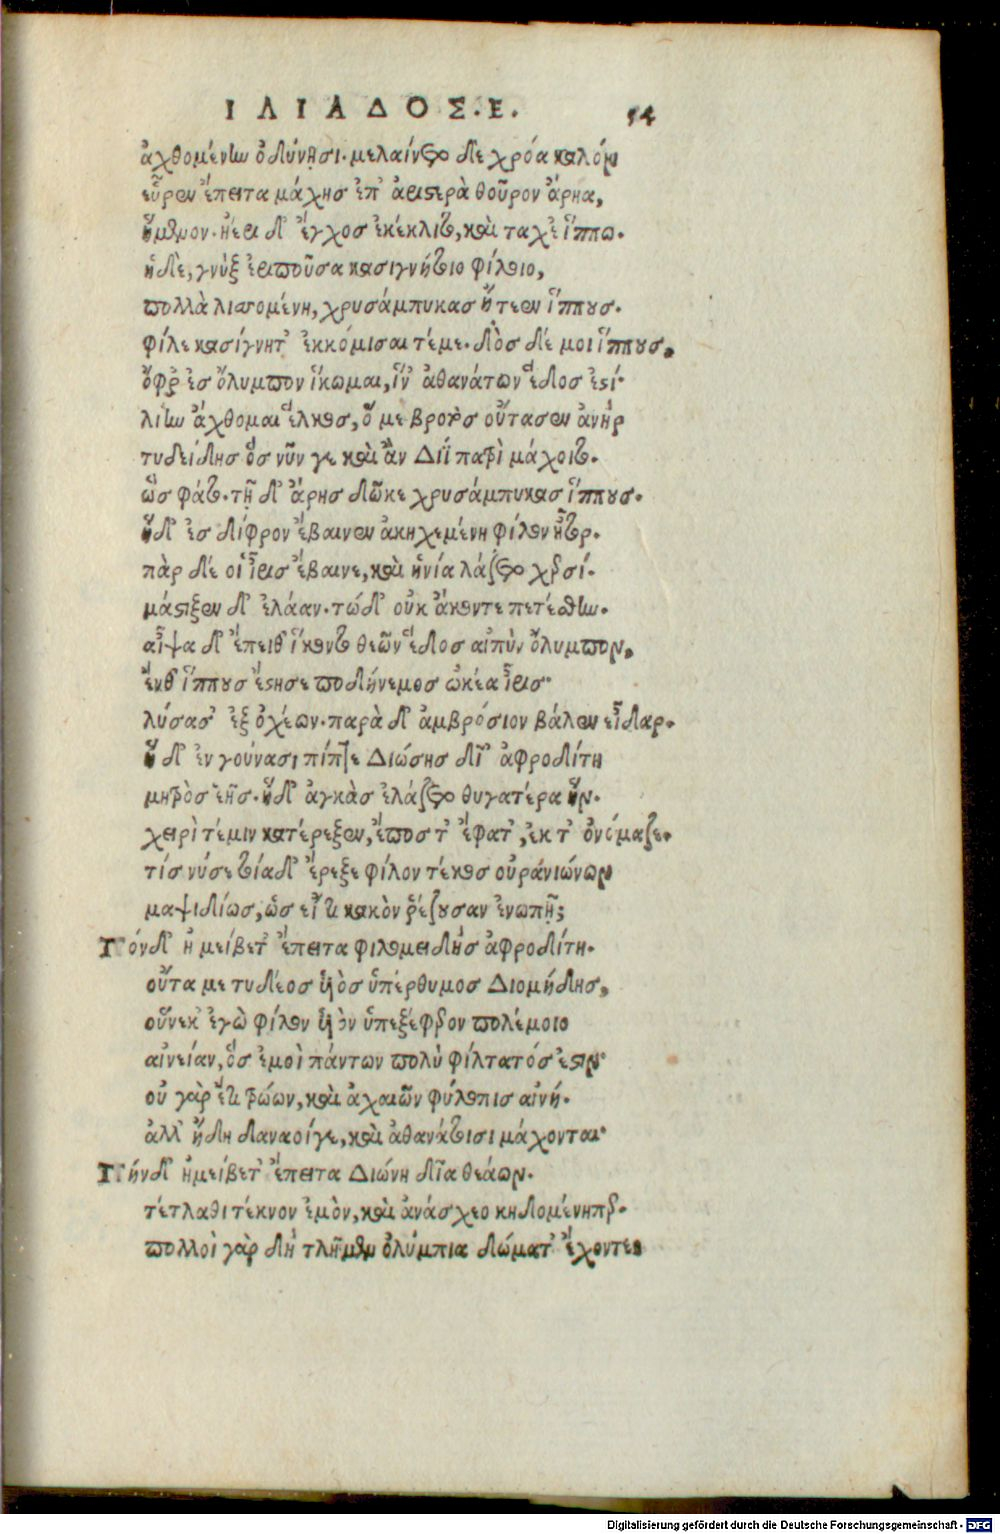 ΙΛΙΑΔΟΣ.Ε. 54
ἀχθομένην ὀδύνῃσι. μελαίνετο δὲ χρόα καλόν
εὗρεν ἔπειτα μάχης ἐπ' ἀριστερὰ θοῦρον ἄρηα,
ἥμενον. ἠέρι δ' ἔγχος ἐκέκλιτο, καὶ ταχἐ ἵππω.
ἡ δὲ, γνὺξ ἐριποῦσα κασιγνήτοιο φίλοιο,
πολλὰ λισσομένη, χρυσάμπυκας ᾔτεεν ἵππους.
φίλε κασίγνητ' ἐκκόμισαι τέμε. δὸς δέ μοι ἵππους,
ὄφρ' ἐς ὄλυμπον ἵκωμαι, ἵν' ἀθανάτων ἕδος ἐστί.
λίην ἄχθομαι ἕλκος, ὅ με βροτὸς οὔτασεν ἀνὴρ
τυδείδης ὃς νῦν γε καὶ ἂν Διῒ πατρὶ μάχοιτο.
ὣς φάτο. τῇ δ' ἄρης δῶκε χρυσάμπυκας ἵππους.
ἡ δ' ἐς δίφρον ἔβαινεν ἀκηχεμένη φίλον ἦτορ.
πὰρ δέ οἱ ἶρις ἔβαινε, καὶ ἡνία λάζετο χερσί.
μάστιξεν δ' ἐλάαν. τώ δ' οὐκ ἄκοντε πετέσθην.
αἶψα δ' ἔπειθ' ἵκοντο θεῶν ἕδος αἰπὺν ὄλυμπον,
ἔνθ' ἵππους ἔστησε ποδήνεμος ὠκέα ἶρις·
λύσασ' ἐξ ὀχέων. παρὰ δ' ἀμβρόσιον βάλεν εἶδαρ.
ἡ δ' ἐν γούνασι πίπτε Διώσης δῖ' ἀφροδίτη
μητρὸς ἑῆς. ἡ δ' ἀγκὰς ἐλάζετο θυγατέρα ἥν.
χειρὶ τέμιν κατέρεξεν, ἔπος τ' ἔφατ', ἐκ τ' ὀνόμαζε.
τίς νύ σε τοία δ' ἔρεξε φίλον τέκος οὐρανιώνων
μαψιδίως, ὡς εἴ τι κακὸν ῥέζουσαν ἐνωπῇ;
Τόν δ' ἠμείβετ' ἔπειτα φιλομειδὴς ἀφροδίτη.
οὖτα με τυδέος υἱὸς ὑπέρθυμος Διομήδης,
οὕνεκ' ἐγὼ φίλον υἱὸν ὑπεξέφερον πολέμοιο
αἰνείαν, ὃς ἐμοὶ πάντων πολὺ φίλτατός ἐστιν·
οὐ γὰρ ἔτι τρώων, καὶ ἀχαιῶν φύλοπις αἰνή.
ἀλλ' ἤδη δαναοίγε, καὶ ἀθανάτοισι μάχονται·
Τήν δ' ἠμείβετ' ἔπειτα Διώνη δῖα θεάων.
τέτλαθι τέκνον ἐμὸν, καὶ ἀνάσχεο κηδομένηπερ.
πολλοὶ γὰρ δὴ τλῆμεν ὀλύμπια δώματ' ἔχοντες
Digitalisierung gefördert durch die Deutsche Forschungsgemeinschaft - DFG